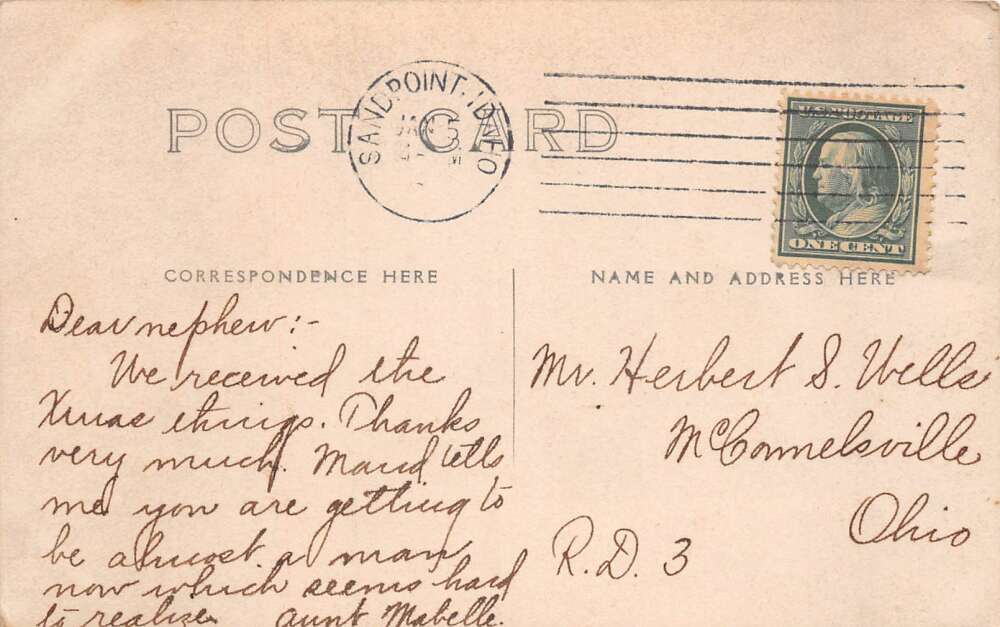 POST CARD
SANDPOINT, IDAHO
JAN
U.S. POSTAGE
ONE CENT
CORRESPONDENCE HERE
NAME AND ADDRESS HERE
Dear nephew:-
We received the
Xmas things. Thanks
very much. Maud tells
me you are getting to
be almost a man
now which seems hard
to realize. Aunt Mabelle.
Mr. Herbert S. Wells
McConnelsville
Ohio
R.D. 3